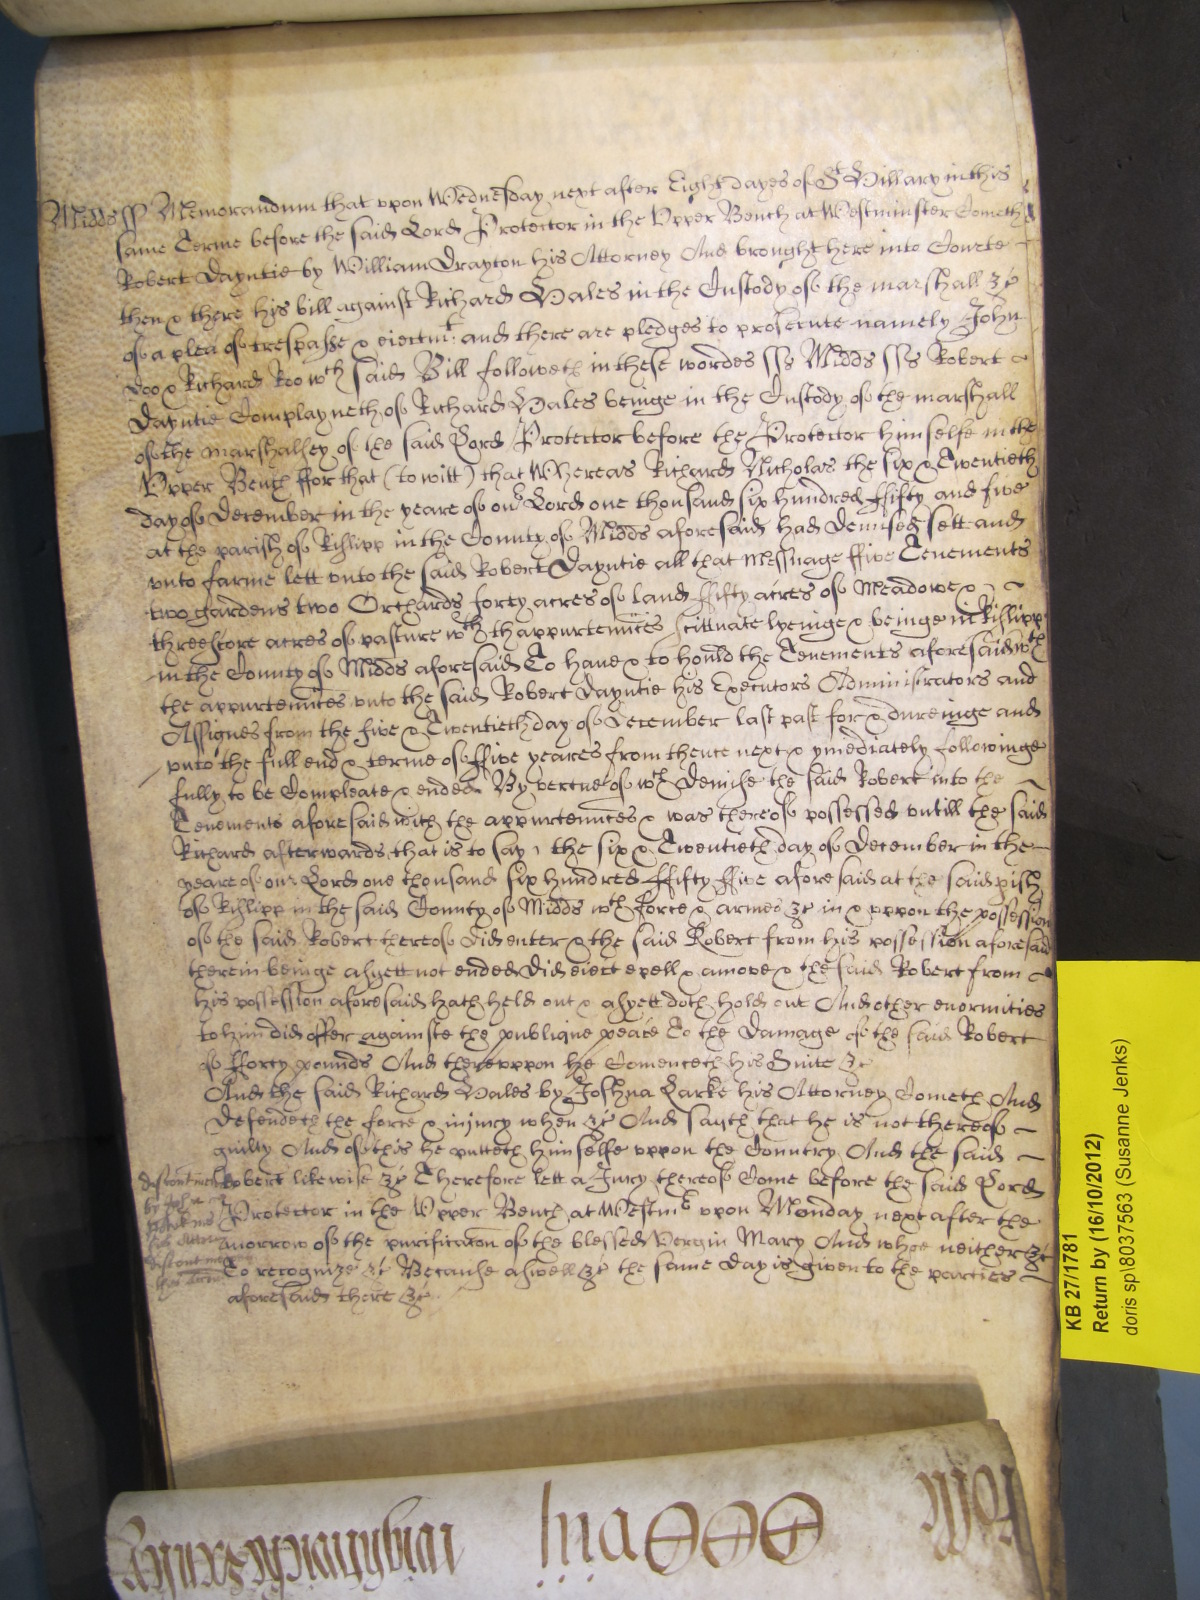 Midds ss Memorandum that vpon Wednesday next after Eight dayes of St Hillary in this
same Terme before the said Lord Protector in the Vpper Bench at Westminster Cometh
Robert Dayntie by William Drayton his Attorney And brought here into Courte
then & there his bill against Richard Hales in the Custody of the marshall &c
of a plea of trespasse & eiectmt and there are pledges to prosecute namely John
Doo & Richard Roo wch said Bill followeth in these wordes ss Midds ss Robert
Dayntie Complayneth of Richard Hales beinge in the Custody of the marshall
of the marshalsey of the said Lord Protector before the Protector himselfe in the
Vpper Bench ffor that (to witt) that Whereas Richard Nicholas the six & Twentieth
day of December in the yeare of our Lord one thousand six hundred ffifty and five
at the parish of Rislipp in the County of Midds aforesaid had demised sett and
vnto farme lett vnto the said Robert Dayntie all that Messuage ffive Tenements
two gardens two Orchards forty acres of land ffifty acres of Meadowe &
threescore acres of pasture wth thappurtennces scittuate lyeinge & beinge in Rislipp
in the County of Midds aforesaid To haue & to hould the Tenements aforesaid wth
the appurtennces vnto the said Robert Dayntie his Executors Administrators and
Assignes from the five & Twentieth day of December last past for & dureinge and
vnto the full end & terme of ffive yeares from thence next & ymediately followinge
fully to be Compleate & ended By vertue of wch demise the said Robert into the
Tenements aforesaid with the appurtennces & was thereof possessed vntill the said
Richard afterwards that is to say the six & Twentieth day of December in the
yeare of our Lord one thousand six hundred ffifty ffive aforesaid at the said pish
of Rislipp in the said County of Midds wth force & armes &c in & vppon the possession
of the said Robert thereof did enter & the said Robert from his possession aforesaid
therein beinge asyett not ended did eiect expell & amove & the said Robert from
his possession aforesaid hath held out & asyett doth hold out And other enormities
to him did offer againste the publique peace To the Damage of the said Robert
of fforty pounds And therevppon he Comenceth his Suite &c
And the said Richard Hales by Joshua Larke his Attorney Cometh And
defendeth the force & iniury when &c And sayth that he is not thereof
guilty And of this he putteth himselfe vppon the Country And the said
Robert likewise &c Therefore lett a Jury thereof Come before the said Lord
Protector in the Vpper Bench at Westmr vpon Munday next after the
morrow of the purificacon of the blessed Vergin Mary And whoe neither &c
To recognize &c Because aswell &c the same day is given to the parties
aforesaid there &c
KB 27/1781
Return by (16/10/2012)
doris sp\8037563 (Susanne Jenks)